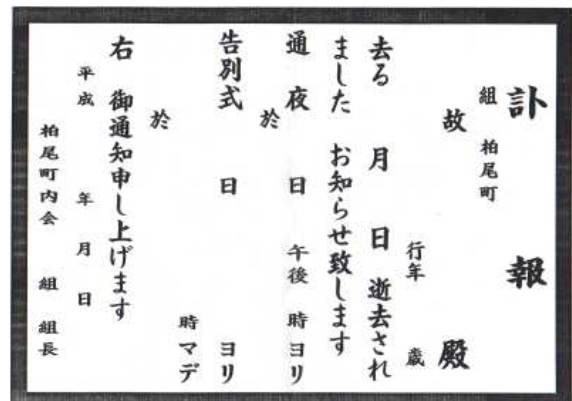 訃報
組 柏尾町
故 殿
行年 歳
去る 月 日 逝去され
ました お知らせ致します
通夜 日 午後 時ヨリ
於
告別式 日 ヨリ
時マデ
於
右 御通知申し上げます
平成 年 月 日
柏尾町内会 組 組長